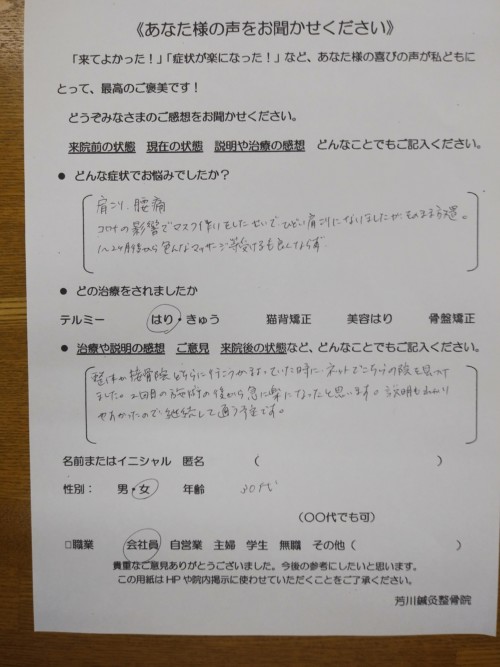 《あなた様の声をお聞かせください》
「来てよかった！」「症状が楽になった！」など、あなた様の喜びの声が私どもに
とって、最高のご褒美です！
どうぞみなさまのご感想をお聞かせください。
来院前の状態 現在の状態 説明や治療の感想 どんなことでもご記入ください。
● どんな症状でお悩みでしたか？
肩こり、腰痛
コロナの影響でマスク作りをしたせいでひどい肩こりになりましたが、そのまま放置。
1〜2ヶ月後から色んなマッサージ等受けるも良くならず
● どの治療をされましたか
テルミー はり・きゅう 猫背矯正 美容はり 骨盤矯正
● 治療や説明の感想 ご意見 来院後の状態など、どんなことでもご記入ください。
整体か接骨院どちらに行こうかまよっていた時に、ネットでこちらの院を見つけ
ました。2回目の施術の後から急に楽になったと思います。説明もわかり
やすかったので継続して通う予定です。
名前またはイニシャル 匿名 （ ）
性別： 男・女 年齢 30代
（〇〇代でも可）
□職業 会社員 自営業 主婦 学生 無職 その他（ ）
貴重なご意見ありがとうございました。今後の参考にしたいと思います。
この用紙はHPや院内掲示に使わせていただくことをご了承ください。
芳川鍼灸整骨院